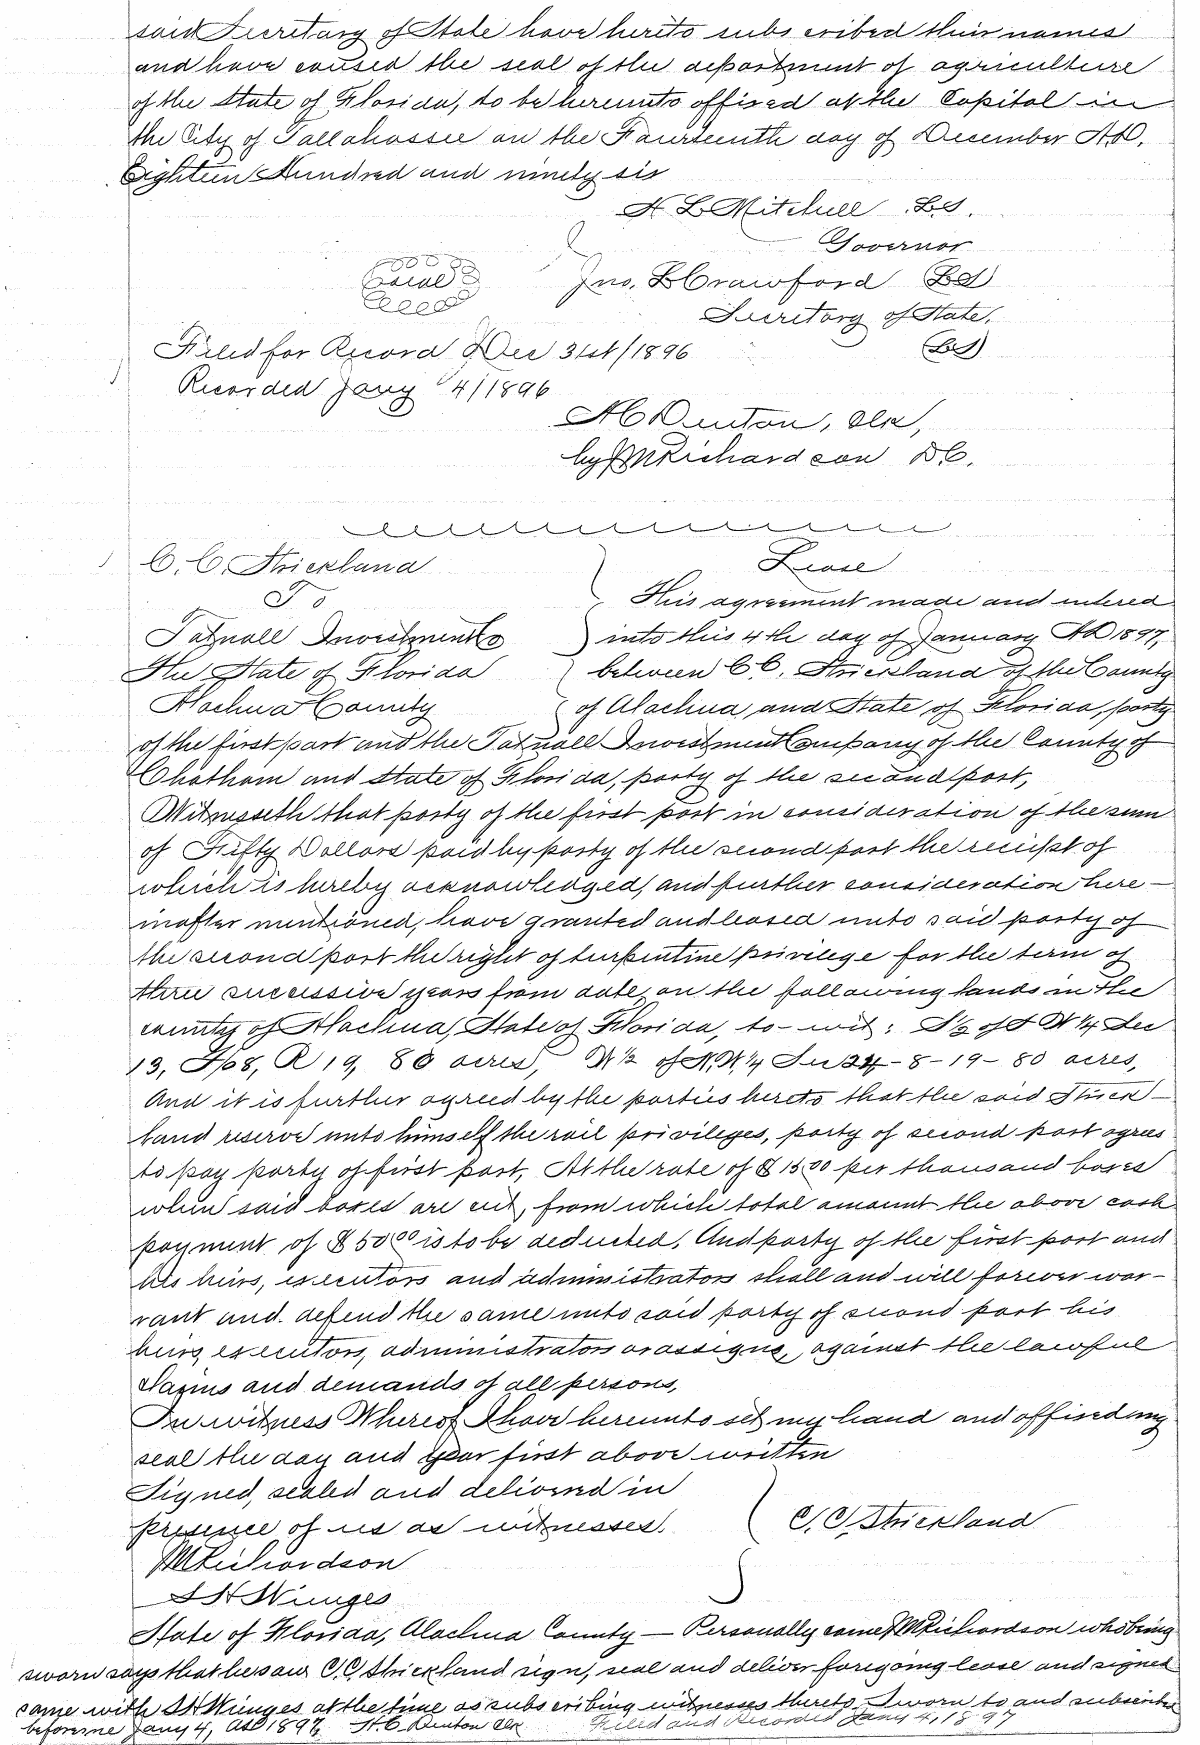 said Secretary of State have hereto subscribed their names
and have caused the seal of the department of agriculture
of the State of Florida, to be hereunto affixed at the Capitol in
the City of Tallahassee on the Fourteenth day of December A.D.
Eighteen Hundred and ninety six
H L Mitchell L.S.
Governor
Seal
Jno. L Crawford (LS)
Secretary of State.
Filed for Record Dec 31st/1896
(LS)
Recorded Jany 4/1896
H C Denton, Clk,
by M Richardson D.C.
C. C. Strickland
Lease
To
This agreement made and entered
Tatnall Investment Co
into this 4th day of January AD 1897,
The State of Florida
between C C. Strickland of the County
Alachua County
of Alachua, and State of Florida, party
of the first part and the Tatnall Investment Company of the County of
Chatham and State of Florida, party of the second part,
Witnesseth that party of the first part in consideration of the sum
of Fifty Dollars paid by party of the second part the receipt of
which is hereby acknowledged, and further consideration here-
inafter mentioned, have granted and leased unto said party of
the second part the right of turpentine privilege for the term of
three successive years from date, on the following lands in the
county of Alachua, State of Florida, to-wit: S½ of S W¼ Sec
13, Tp8, R 19, 80 acres, W½ of N.W¼ Sec 24-8-19-80 acres,
And it is further agreed by the parties hereto that the said Strick-
land reserve unto himself the rail privileges, party of second part agrees
to pay party of first part, At the rate of $15.00 per thousand boxes
when said boxes are cut, from which total amount the above cash
payment of $50.00 is to be deducted. And party of the first part and
his heirs, executors and administrators shall and will forever war-
rant and defend the same unto said party of second part his
heirs, executors, administrators or assigns, against the lawful
claims and demands of all persons,
In witness Whereof I have hereunto set my hand and affixed my
seal the day and year first above written
Signed, sealed and delivered in
presence of us as witnesses.
C. C. Strickland
M Richardson
S H Winges
State of Florida, Alachua County — Personally came M Richardson who being
sworn says that he saw C. C Strickland sign, seal and deliver foregoing lease and signed
same with S H Winges at the time as subscribing witnesses thereto. Sworn to and subscribed
before me Jany 4, AD 1897, H. C. Denton Clk Filed and Recorded Jany 4, 1897